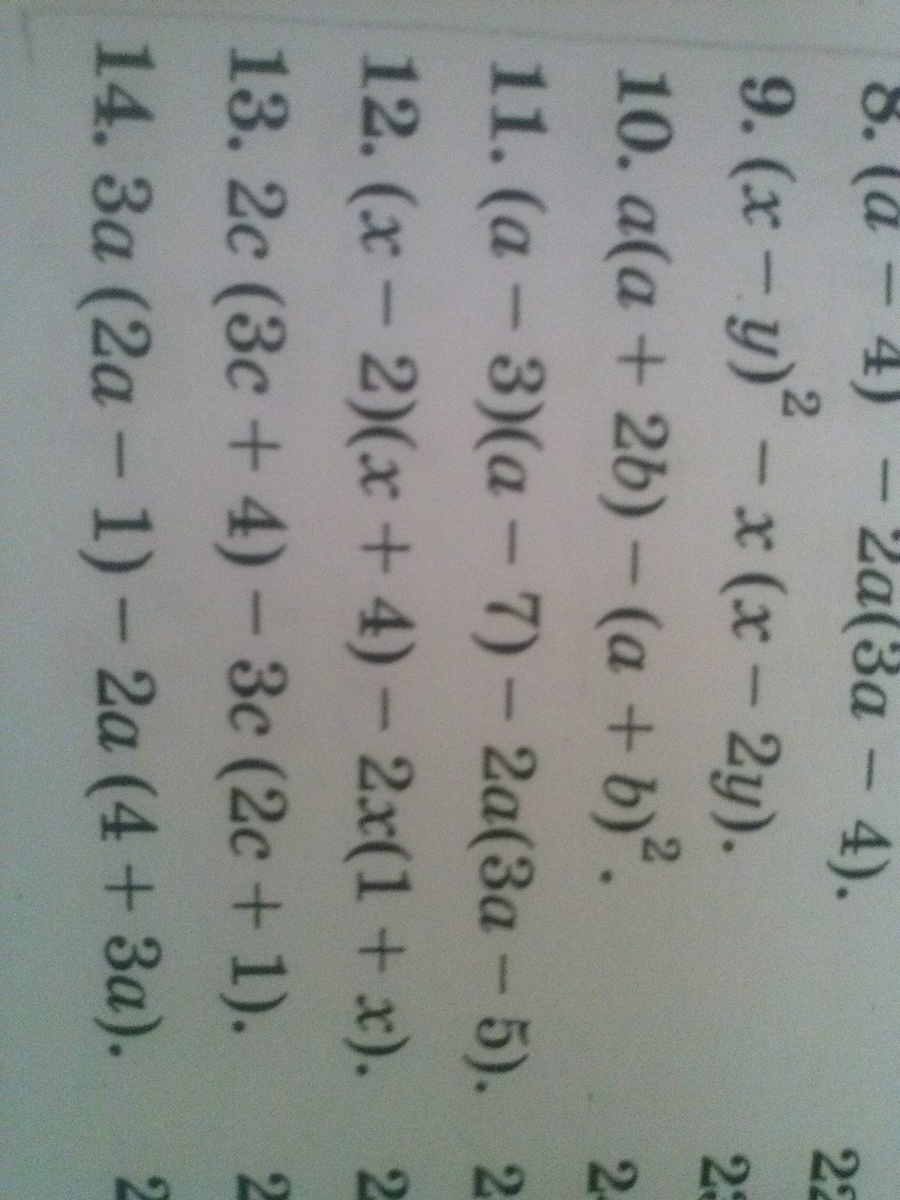 8. (a − 4) − 2a(3a − 4).
9. (x − y)² − x (x − 2y).
10. a(a + 2b) − (a + b)².
11. (a − 3)(a − 7) − 2a(3a − 5).
12. (x − 2)(x + 4) − 2x(1 + x).
13. 2c (3c + 4) − 3c (2c + 1).
14. 3a (2a − 1) − 2a (4 + 3a).